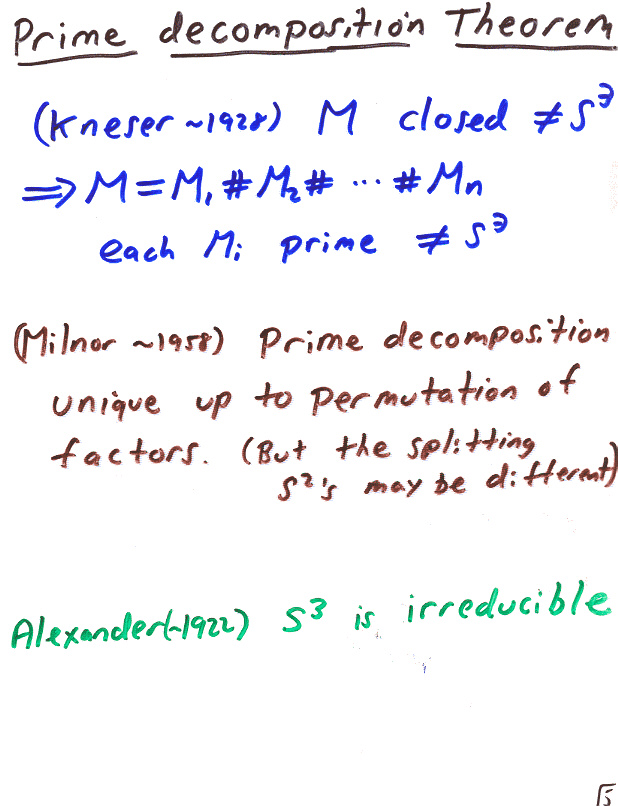 Prime decomposition Theorem
(Kneser ~1928) M closed ≠ S³
⇒ M = M₁ # M₂ # ... # Mn
each Mi prime ≠ S³
(Milnor ~1958) Prime decomposition
unique up to permutation of
factors. (But the splitting
S²'s may be different)
Alexander(~1922) S³ is irreducible
5